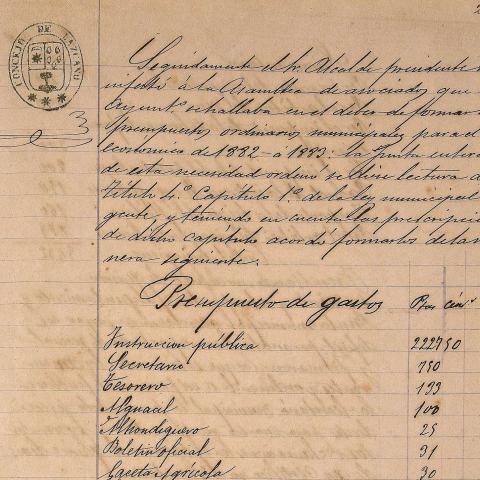 CONCEJO DE LAZCANO
Seguidamente el Sr. Alcalde presidente
ifestó á la Asamblea de asociados que
Ayunt.º se hallaba en el deber de formar
presupuestos ordinarios municipales para el
económico de 1882 á 1883: la Junta entera
de esta necesidad ordenó se diese lectura
título 4.º Capítulo 1.º de la ley municipal
gente, y teniendo en cuenta las prescripcio
de dicho capítulo acordó formarlos de la
nera siguiente.
Presupuesto de gastos Ptas cén.s
Instruccion pública 2227 50
Secretario 750
Tesorero 133
Alguacil 100
Alhondiguero 25
Boletin oficial 31
Gaceta Agrícola 30